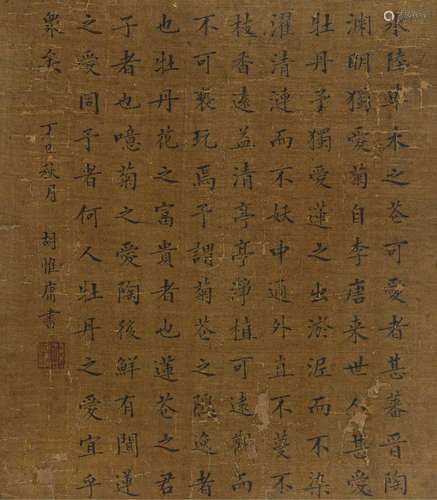 水陸草木之花可愛者甚蕃晉陶
淵明獨愛菊自李唐来世人甚愛
牡丹予獨愛蓮之出淤泥而不染
濯清漣而不妖中通外直不蔓不
枝香遠益清亭亭淨植可遠觀而
不可褻玩焉予謂菊花之隱逸者
也牡丹花之富貴者也蓮花之君
子者也噫菊之愛陶後鮮有聞蓮
之愛同予者何人牡丹之愛宜乎
衆矣
丁巳秋月 胡惟庸書